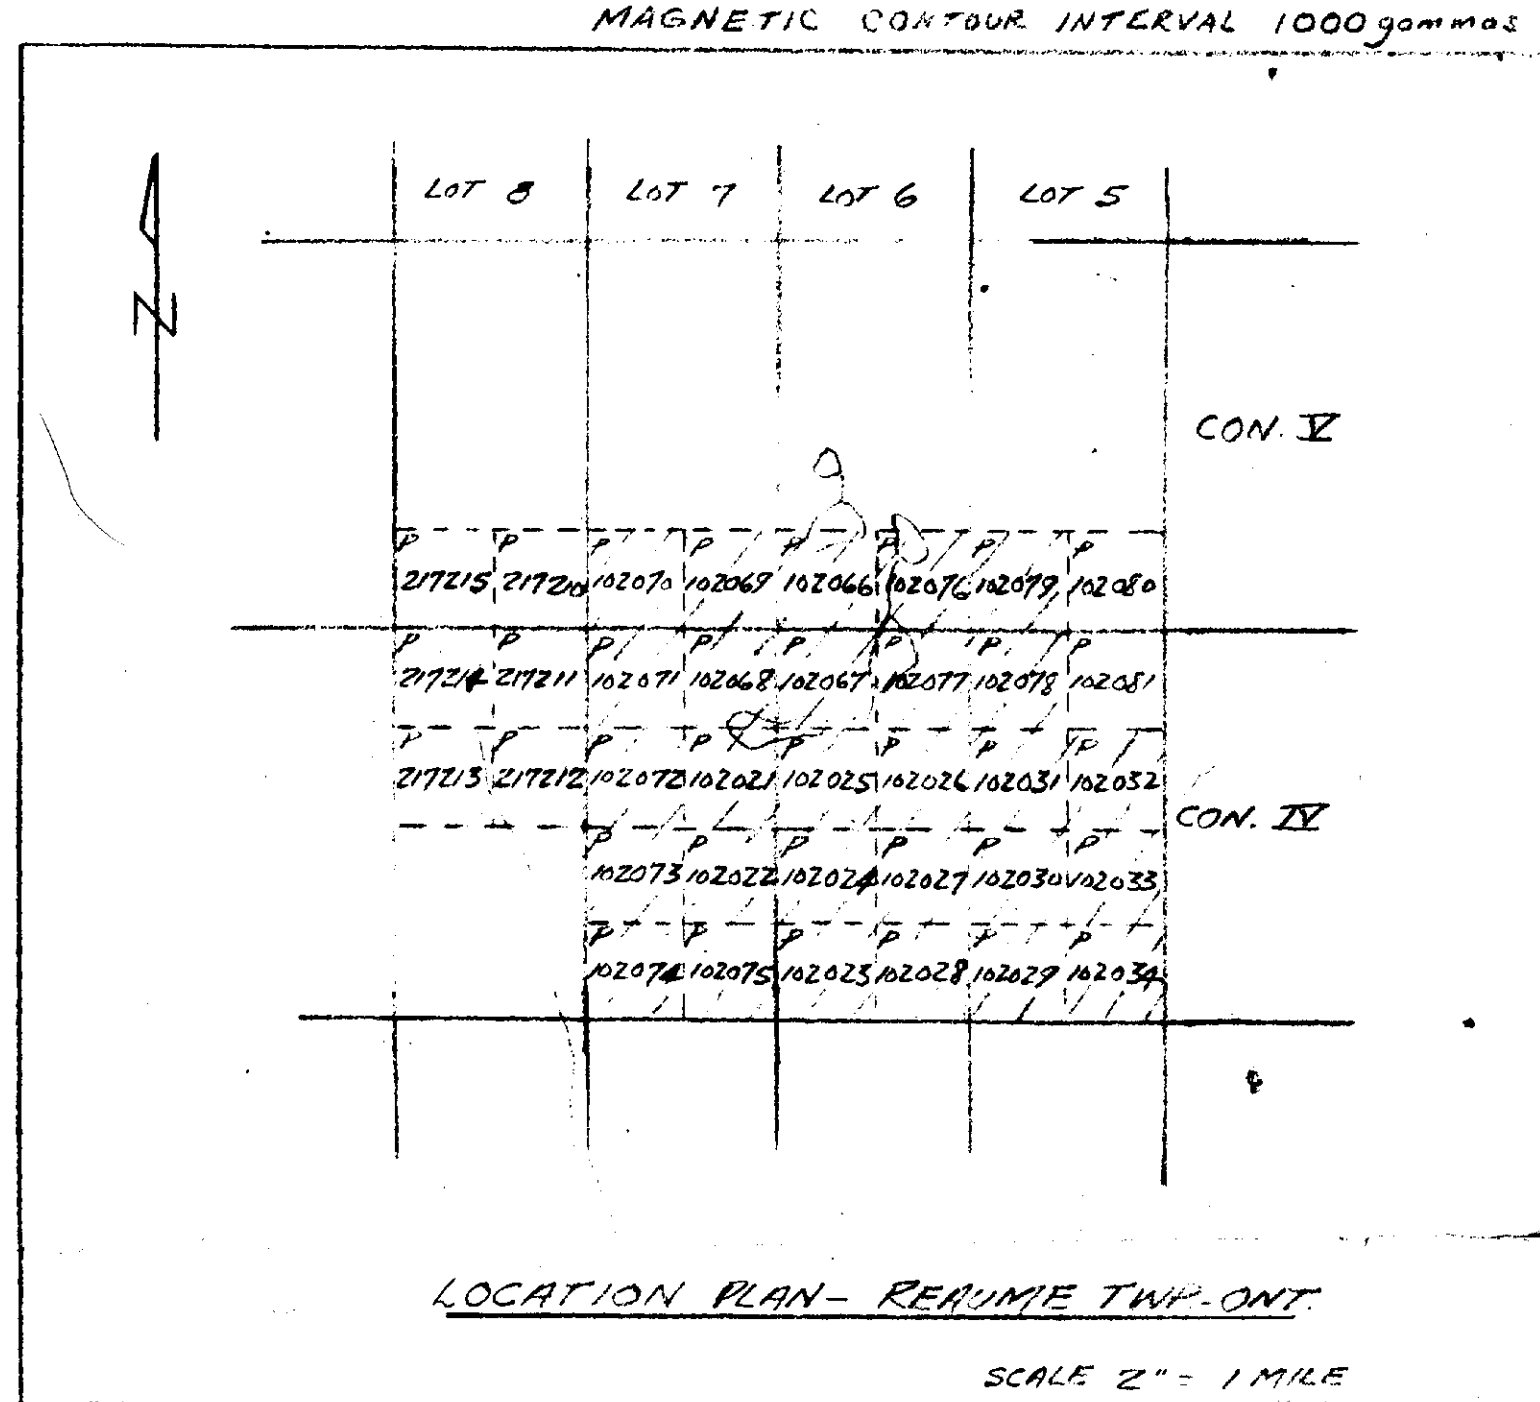 MAGNETIC CONTOUR INTERVAL 1000 gammas
LOT 8 LOT 7 LOT 6 LOT 5
N
CON. V
P P P P P P P P
217215 217210 102070 102069 102066 102076 102079 102080
P P P P P P P P
217214 217211 102071 102068 102067 102077 102078 102081
P P P P P P P P
217213 217212 102072 102021 102025 102026 102031 102032
CON. IV
P P P P P P
102073 102022 102024 102027 102030 102033
P P P P P P
102074 102075 102023 102028 102029 102034
LOCATION PLAN- REAUME TWP.-ONT.
SCALE 2" = 1 MILE